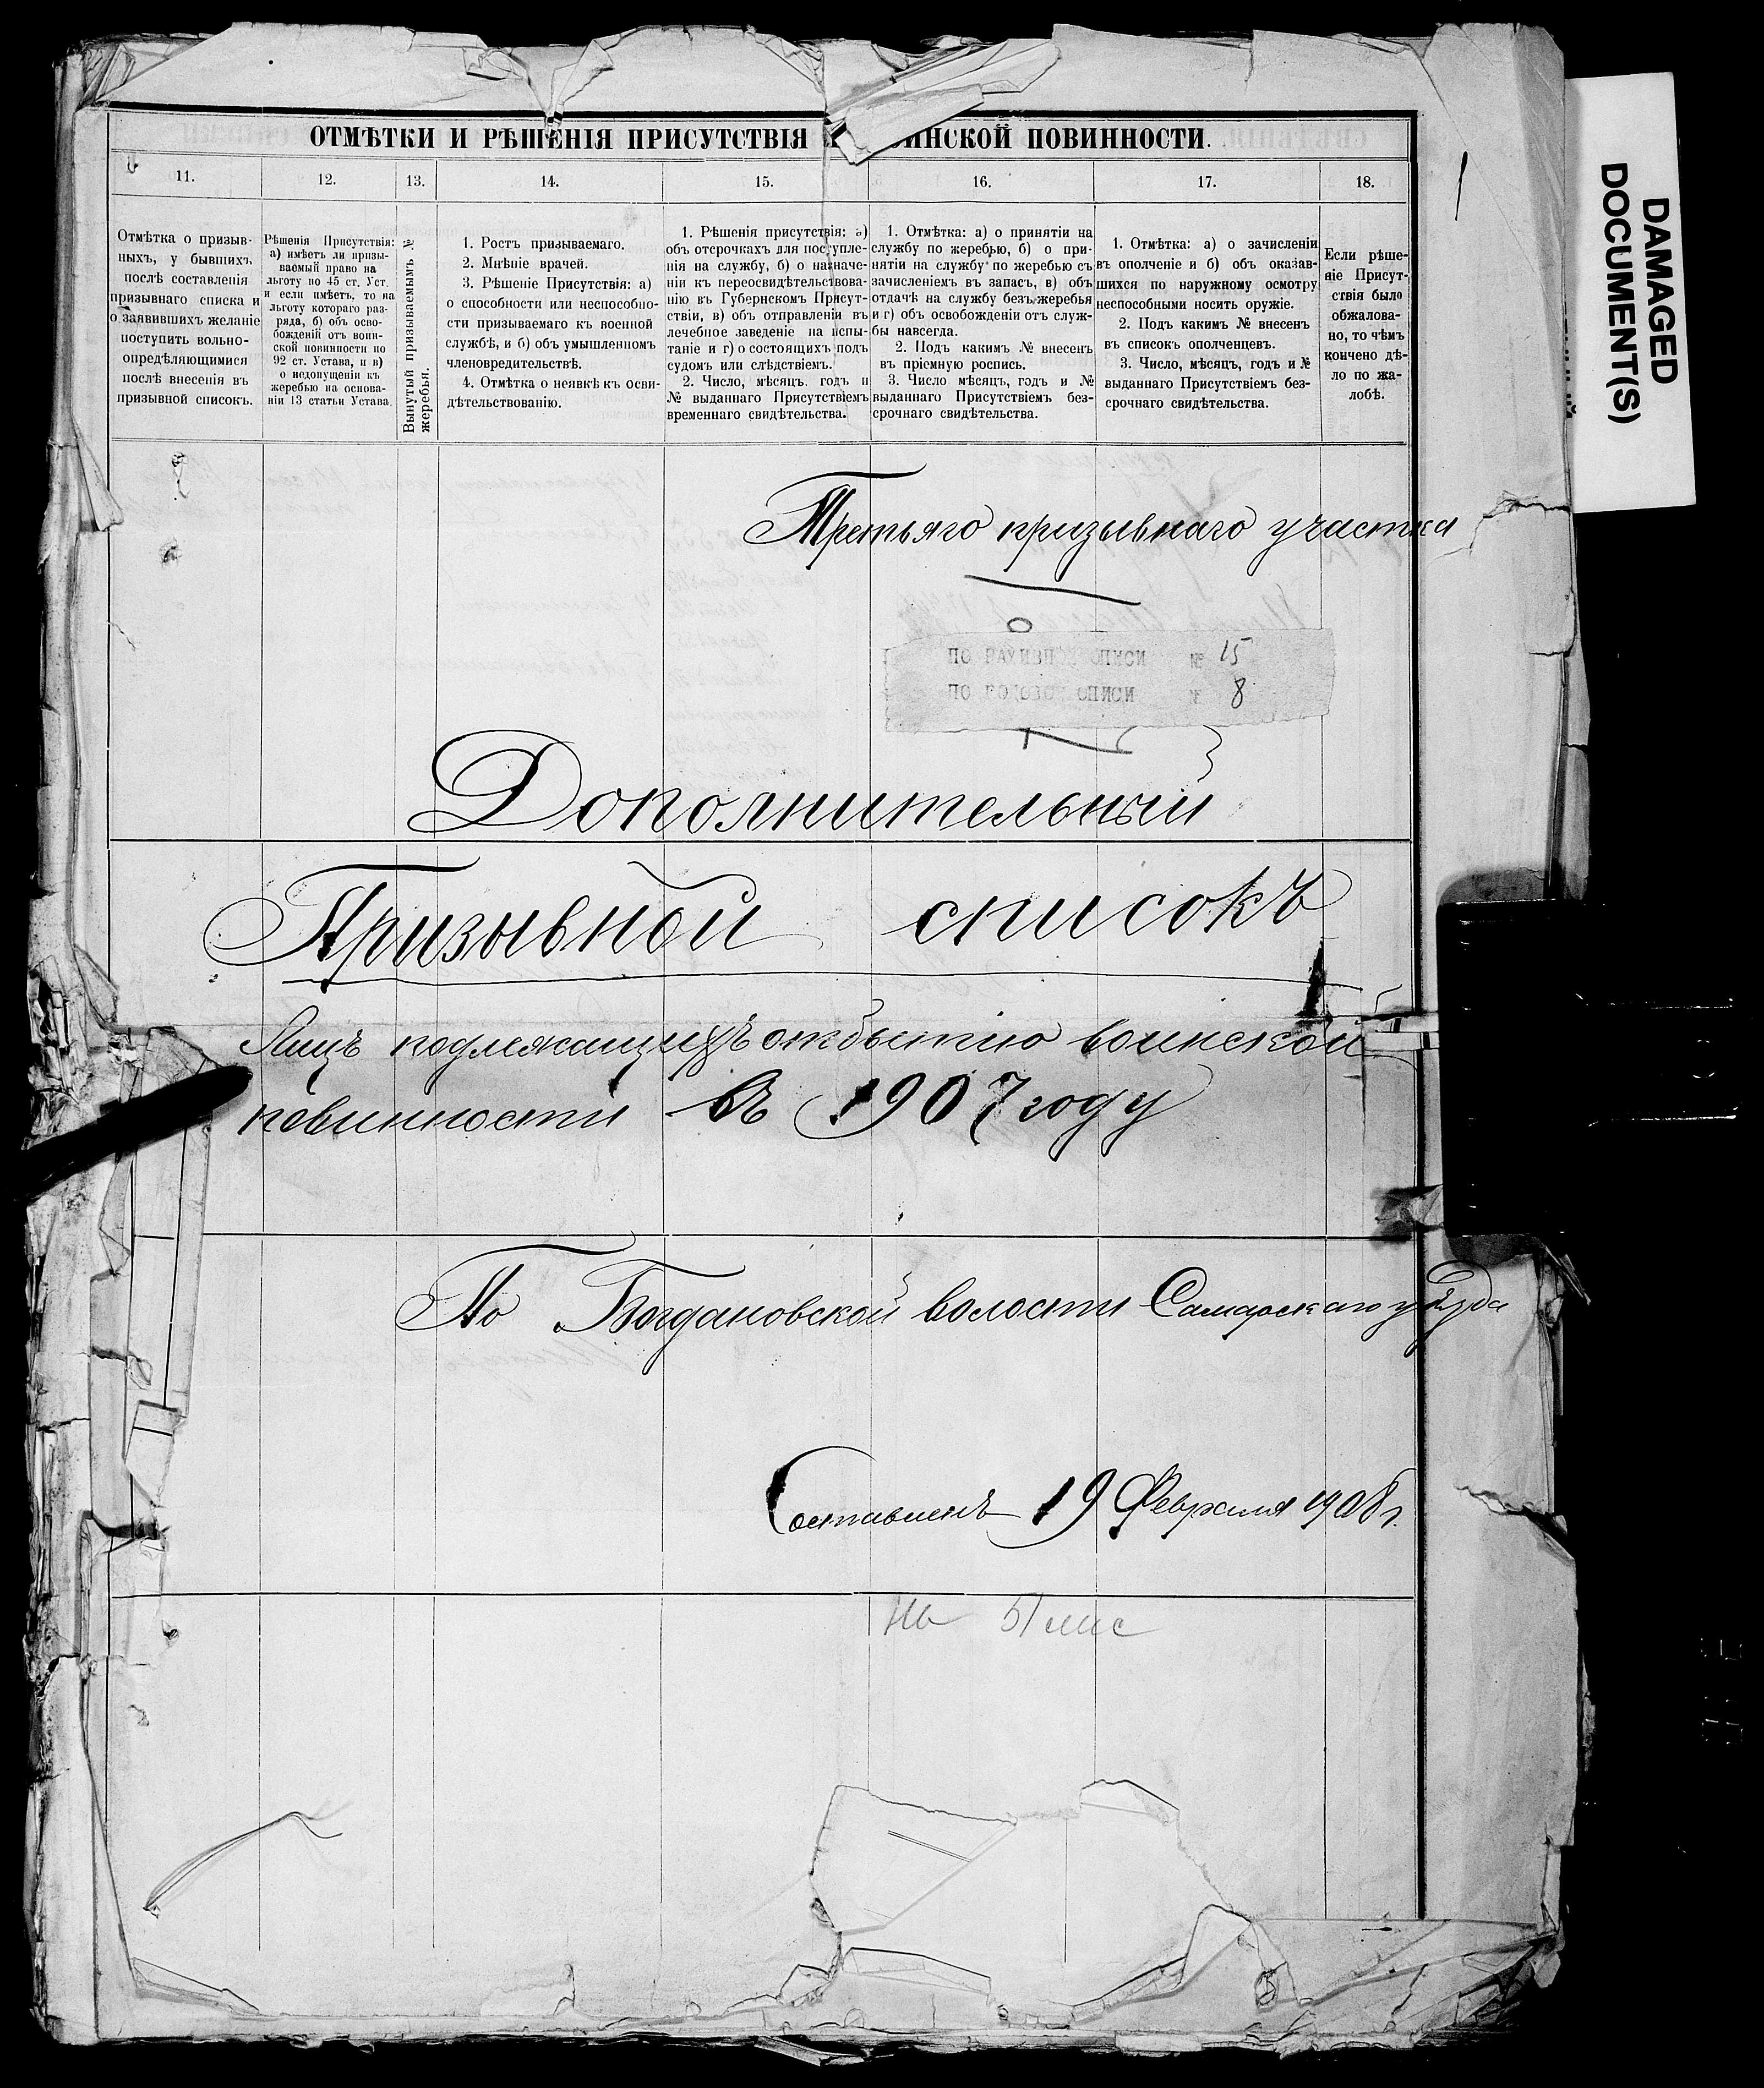 ОТМѢТКИ И РѢШЕНІЯ ПРИСУТСТВІЯ ИНСКОЙ ПОВИННОСТИ.
11.
12.
13.
14.
15.
16.
17.
18.
Отмѣтка о призыв-
ныхъ, у бывшихъ
послѣ составленія
призывнаго списка и
о заявившихъ желаніе
поступить вольно-
опредѣляющимися
послѣ внесенія въ
призывной списокъ.
Рѣшенія Присутствія:
а) имѣетъ ли призы-
ваемый право на
льготу по 45 ст. Уст.
и если имѣетъ, то на
льготу котораго раз-
ряда, б) объ осво-
божденій отъ воин-
ской повинности по
92 ст. Устава, и в)
о недопущеніи къ
жеребью на основа-
ніи 13 статьи Устава.
Вынутый призываемымъ №
жеребья.
1. Ростъ призываемаго.
2. Мнѣніе врачей.
3. Рѣшеніе Присутствія: а)
о способности или неспособно-
сти призываемаго къ военной
службѣ, и б) объ умышленномъ
членовредительствѣ.
4. Отмѣтка о неявкѣ къ осви-
дѣтельствованію.
1. Рѣшенія присутствія: а)
объ отсрочкахъ для поступле-
нія на службу, б) о назначе-
ніи къ переосвидѣтельствова-
нію въ Губернскомъ Присут-
ствіи, в) объ отправленіи въ
лечебное заведеніе на испы-
таніе и г) о состоящихъ подъ
судомъ или слѣдствіемъ.
2. Число, мѣсяцъ. годъ и
№ выданнаго Присутствіемъ
временнаго свидѣтельства.
1. Отмѣтка: а) о принятіи на
службу по жеребью, б) о при-
нятіи на службу по жеребью съ
зачисленіемъ въ запасъ, в) объ
отдачѣ на службу безъ жеребья
и г) объ освобожденіи отъ служ-
бы навсегда.
2. Подъ какимъ № внесенъ
въ пріемную роспись.
3. Число мѣсяцъ, годъ и №
выданнаго Присутствіемъ без-
срочнаго свидѣтельства.
1. Отмѣтка: а) о зачисленіи
въ ополченіе и б) объ оказав-
шихся по наружному осмотру
неспособными носить оружіе.
2. Подъ какимъ № внесенъ
въ списокъ ополченцевъ.
3. Число, мѣсяцъ, годъ и №
выданнаго Присутствіемъ без-
срочнаго свидѣтельства.
Если рѣше-
ніе Присут-
ствія было
обжалова-
но, то чѣмъ
кончено дѣ-
ло по жа-
лобѣ.
DAMAGED
DOCUMENT(S)
Третьяго призывнаго участка
ОПИСИ № 15
ОПИСИ № 8
Дополнительный
Призывной списокъ
Лицъ подлежащихъ отбытію воинской
повинности въ 1907 году
По Богдановской волости Самарскаго уѣзда
Составленъ 19 Февраля 1908 г.